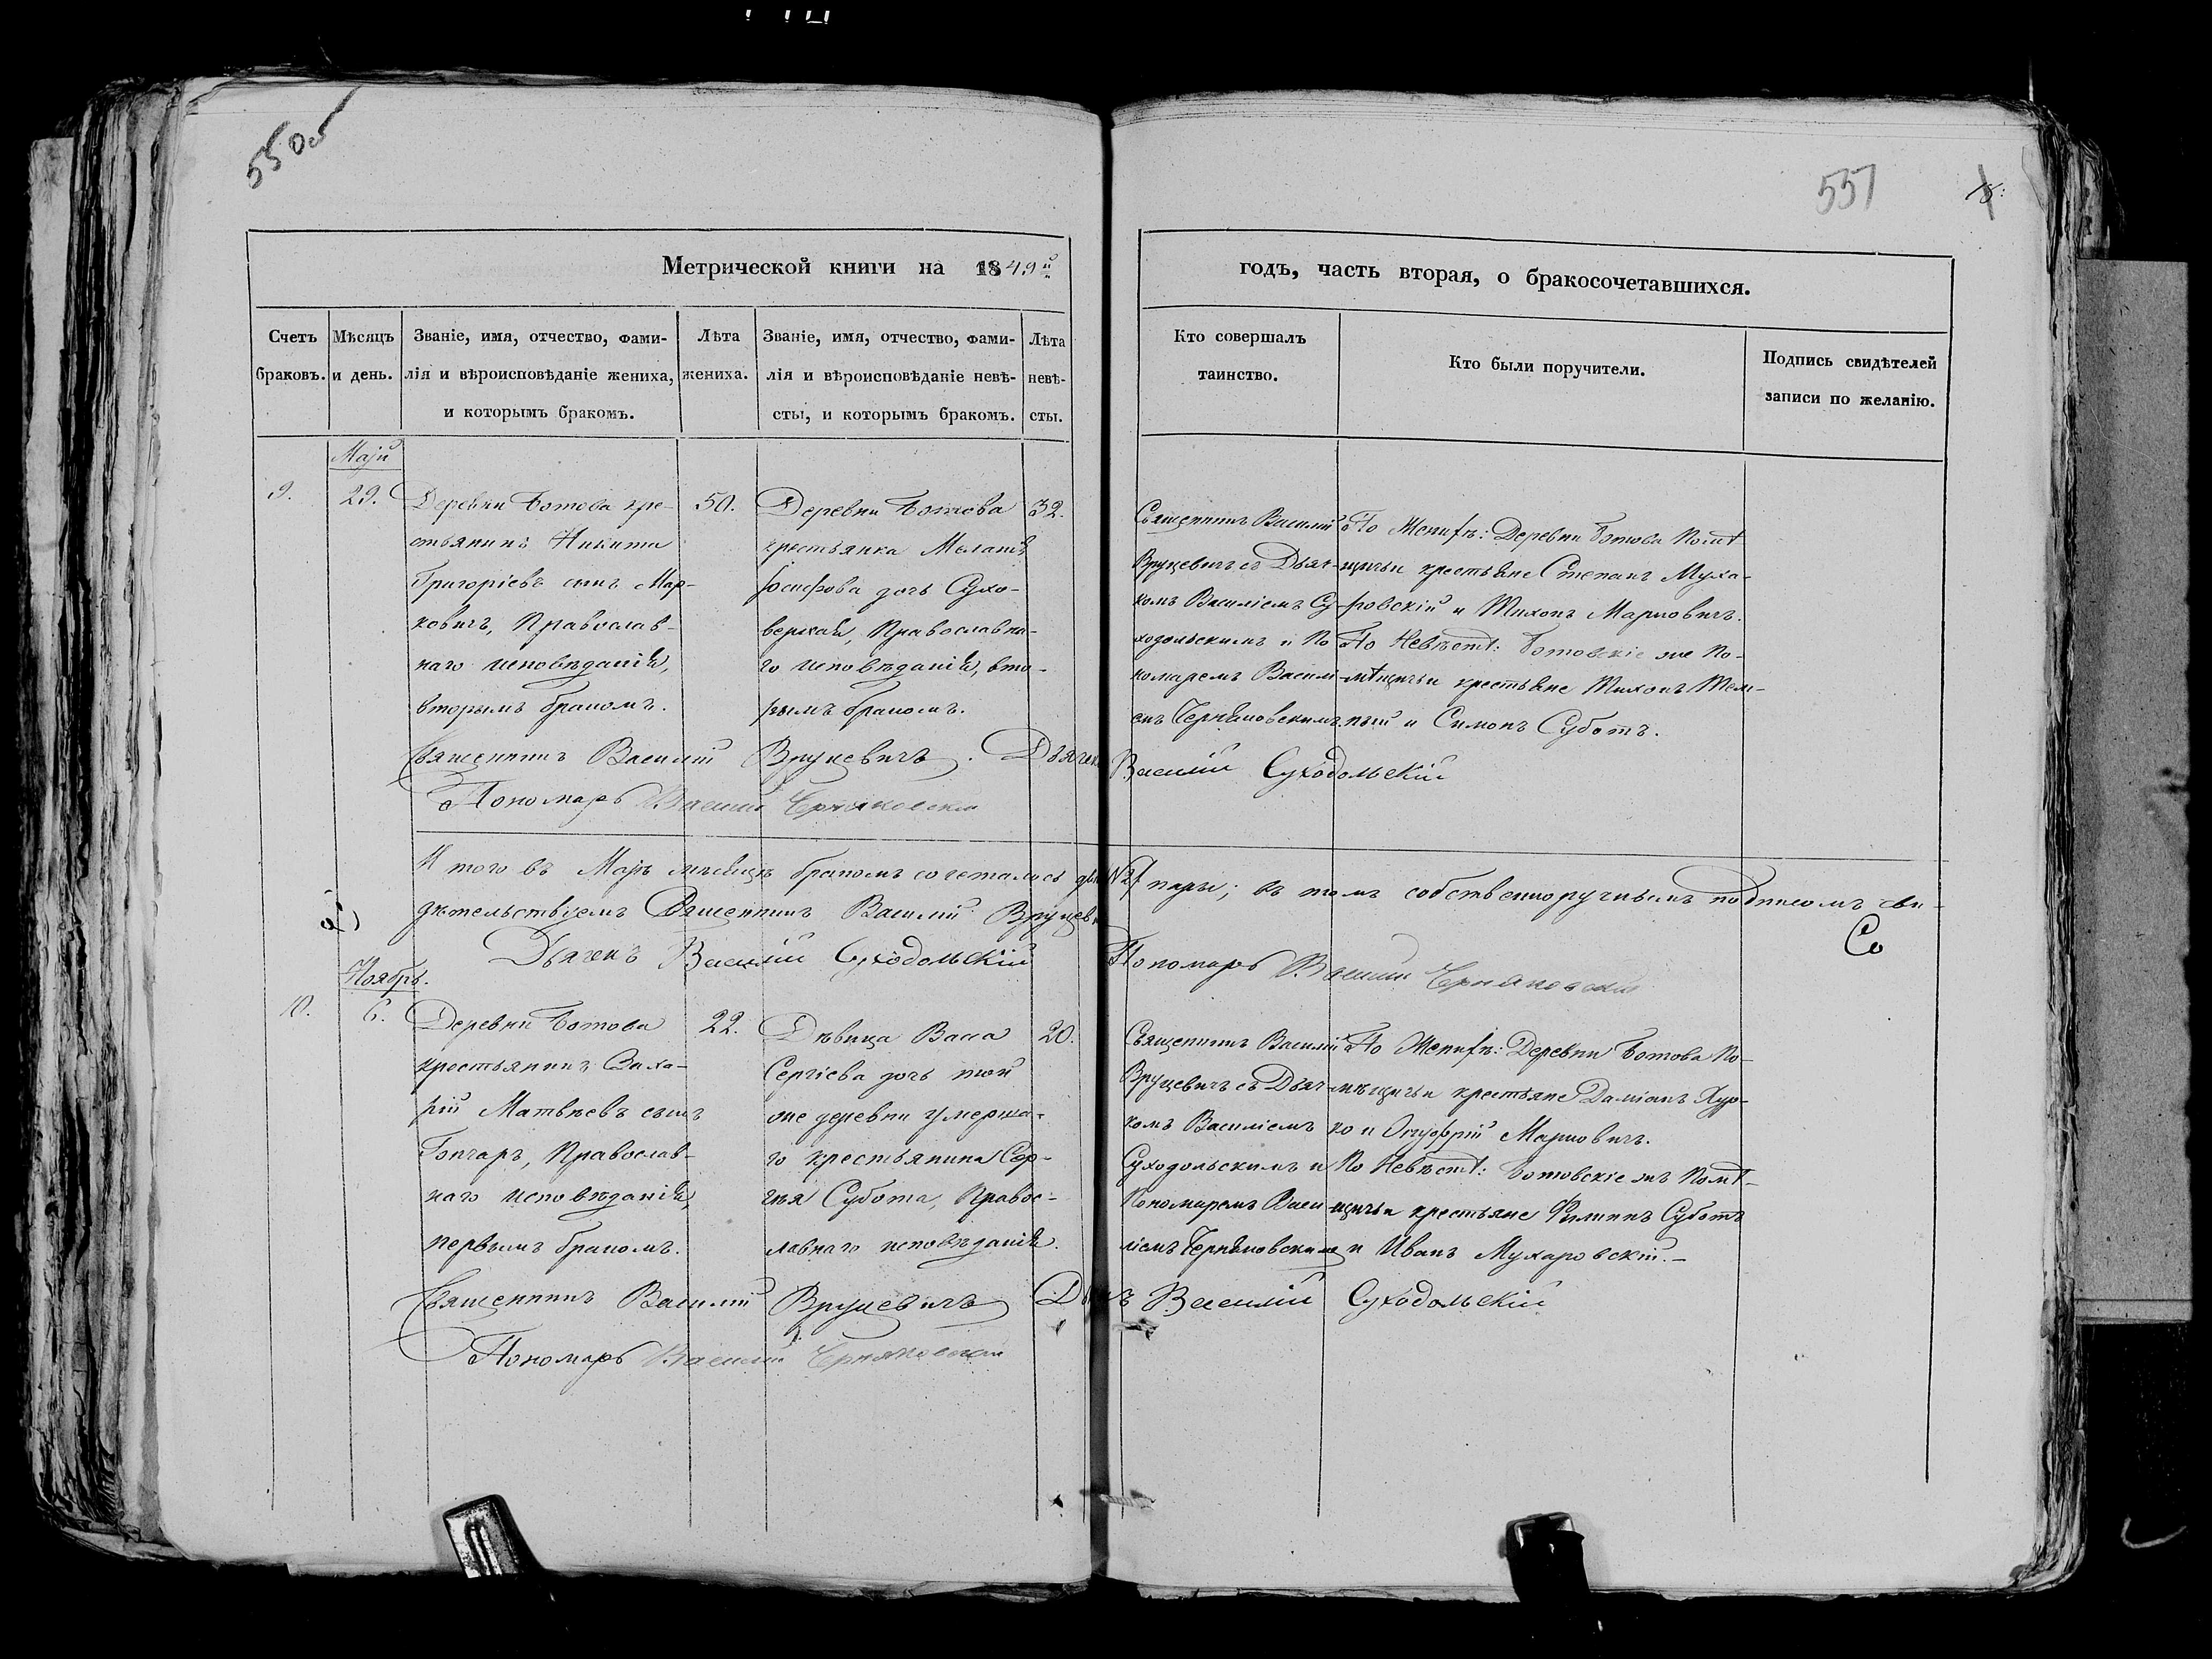 550об
557
Метрической книги на 1849й
годъ, часть вторая, о бракосочетавшихся.
Счетъ браковъ.
Мѣсяцъ и день.
Званіе, имя, отчество, фами-
лія и вѣроисповѣданіе жениха,
и которымъ бракомъ.
Лѣта
жениха.
Званіе, имя, отчество, фами-
лія и вѣроисповѣданіе невѣ-
сты, и которымъ бракомъ.
Лѣта
невѣ-
сты.
Кто совершалъ
таинство.
Кто были поручители.
Подпись свидѣтелей
записи по желанію.
Маій
9.
29.
Деревни Ботова кре-
стьянинъ Никита
Григоріевъ сынъ Мар-
ковичъ, Православ-
наго исповѣданія,
вторымъ бракомъ.
50.
Деревни Ботова
крестьянка Меланія
Іосифова дочь Сухо-
верхая, Православна-
го исповѣданія, вто-
рымъ бракомъ.
32.
Священникъ Василій
Вруцевичъ съ Дьяч-
комъ Василіемъ Су-
ходольскимъ и По
номаремъ Васили-
емъ Черняковскимъ
По Женихѣ: Деревни Ботова Помѣ
щичьи крестьяне Степанъ Муха-
ровскій и Тихонъ Марковичъ.
По Невѣстѣ: Ботовскіе же По-
мѣщичьи крестьяне Тихонъ Тем-
ный и Симонъ Суботъ.
Священникъ Василій Вруцевичъ. Дьячекъ Василій Суходольскій
Пономарь Василій Черняковскій
Итого въ Маіѣ мѣсяцѣ бракомъ сочеталось двѣ №2 пары; въ томъ собственноручнымъ подписомъ сви-
дѣтельствуемъ Священникъ Василій Вруцевичъ
Со
Дьячекъ Василій Суходольскій Пономарь Василій Черняковскій
Ноябрь.
10.
6.
Деревни Ботова
крестьянинъ Заха-
рій Матвѣевъ сынъ
Гончаръ, Православ-
наго исповѣданія,
первымъ бракомъ.
22.
Дѣвица Васа
Сергіева дочь той
же деревни умерша-
го крестьянина Сер-
гѣя Субота, Правос-
лавнаго исповѣданія.
20.
Священникъ Василій
Вруцевичъ съ Дьяч-
комъ Василіемъ
Суходольскимъ и
Пономаремъ Васи
ліемъ Черняковским
По Женихѣ: Деревни Ботова По-
мѣщичьи крестьяне Даміанъ Хур-
ко и Онуфрій Марковичъ.
По Невѣстѣ: Ботовскіе жъ Помѣ-
щичьи крестьяне Филипъ Суботъ
и Иванъ Мухаровскій.
Священникъ Василій Вруцевичъ Дьячекъ Василій Суходольскій
Пономарь Василій Черняковскій